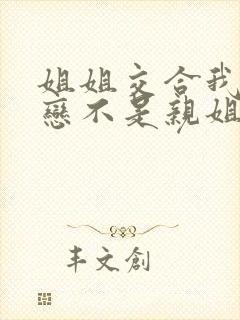 姐姐交合我
戀不是親姐
丰文創